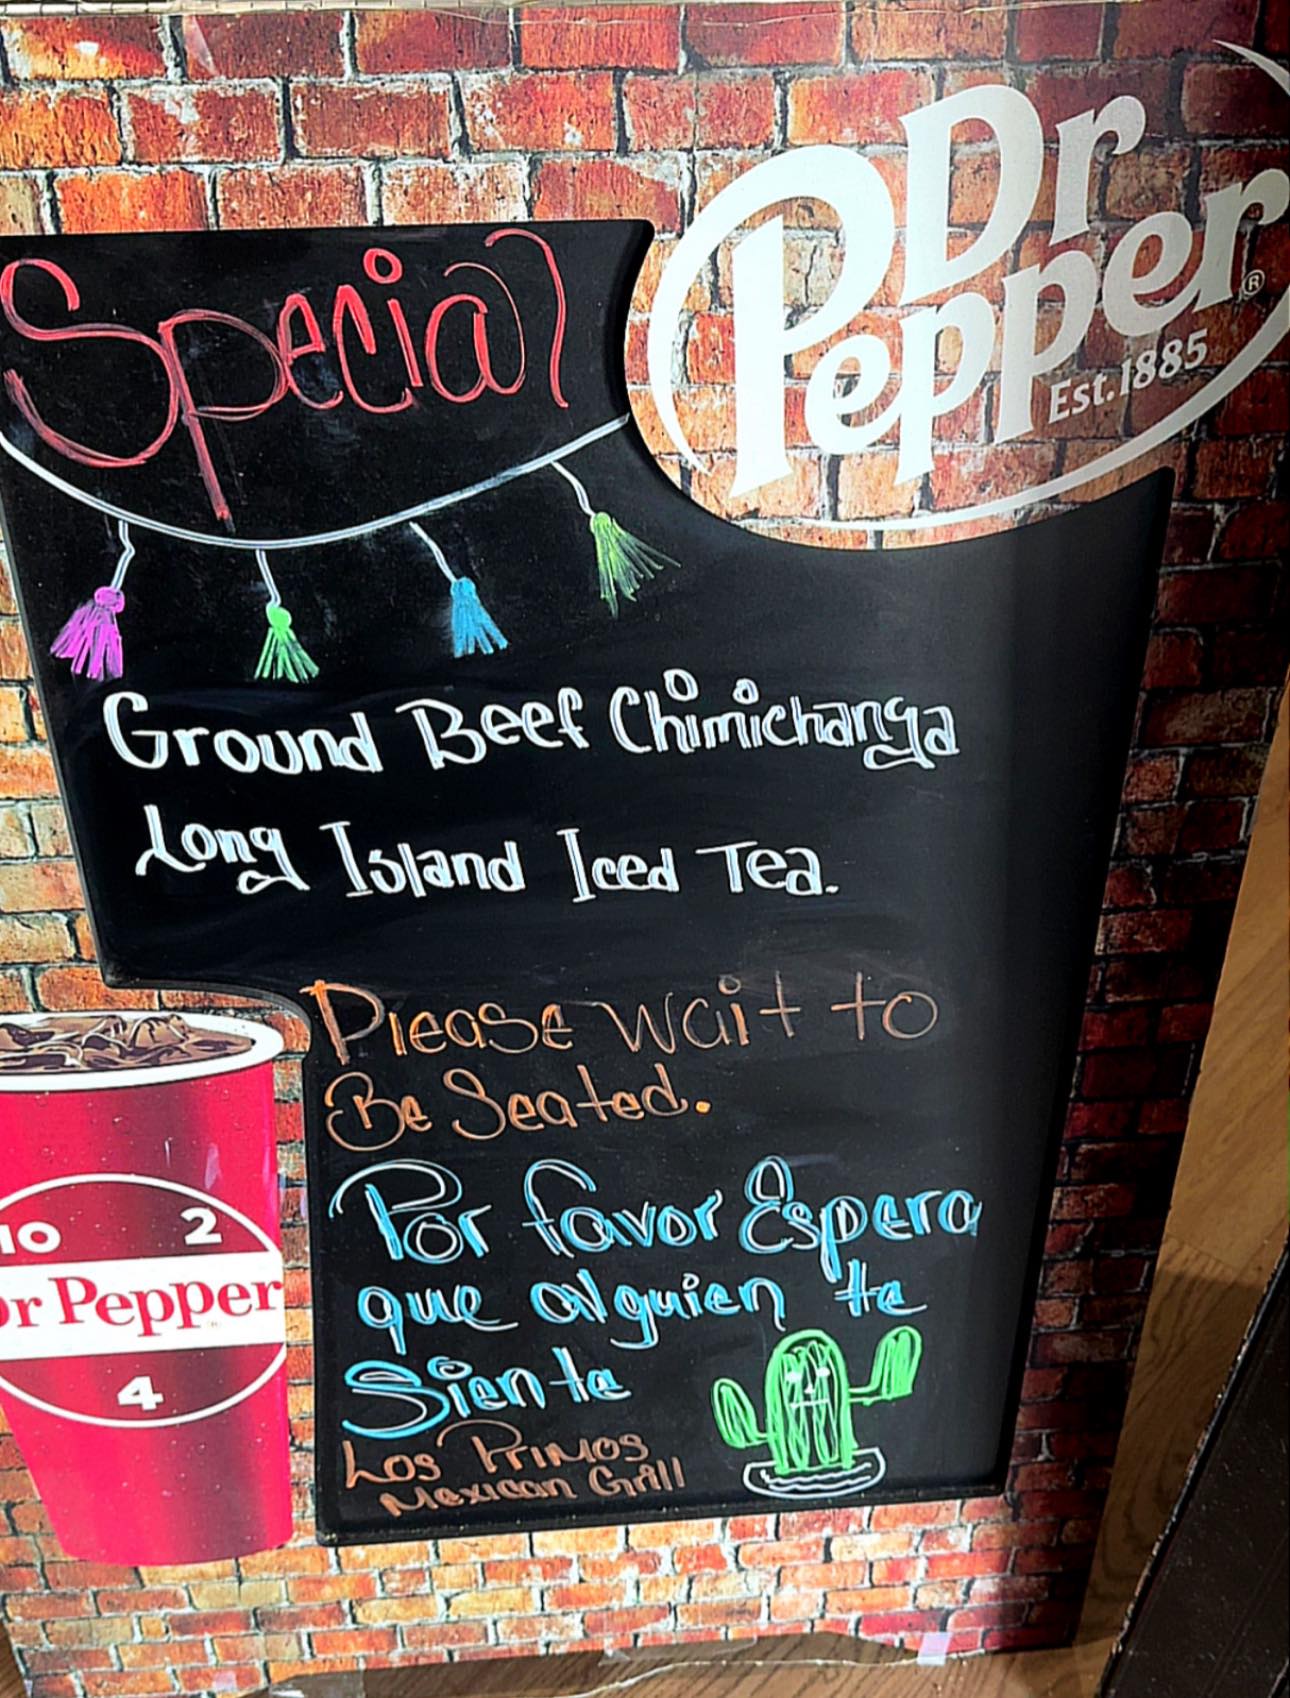 Dr
Pepper®
Est. 1885
Special
Ground Beef Chimichanga
Long Island Iced Tea.
Please wait to
Be Seated.
Por favor Espera
que alguien te
Siente
Los Primos
Mexican Grill
10 2
Dr Pepper
4